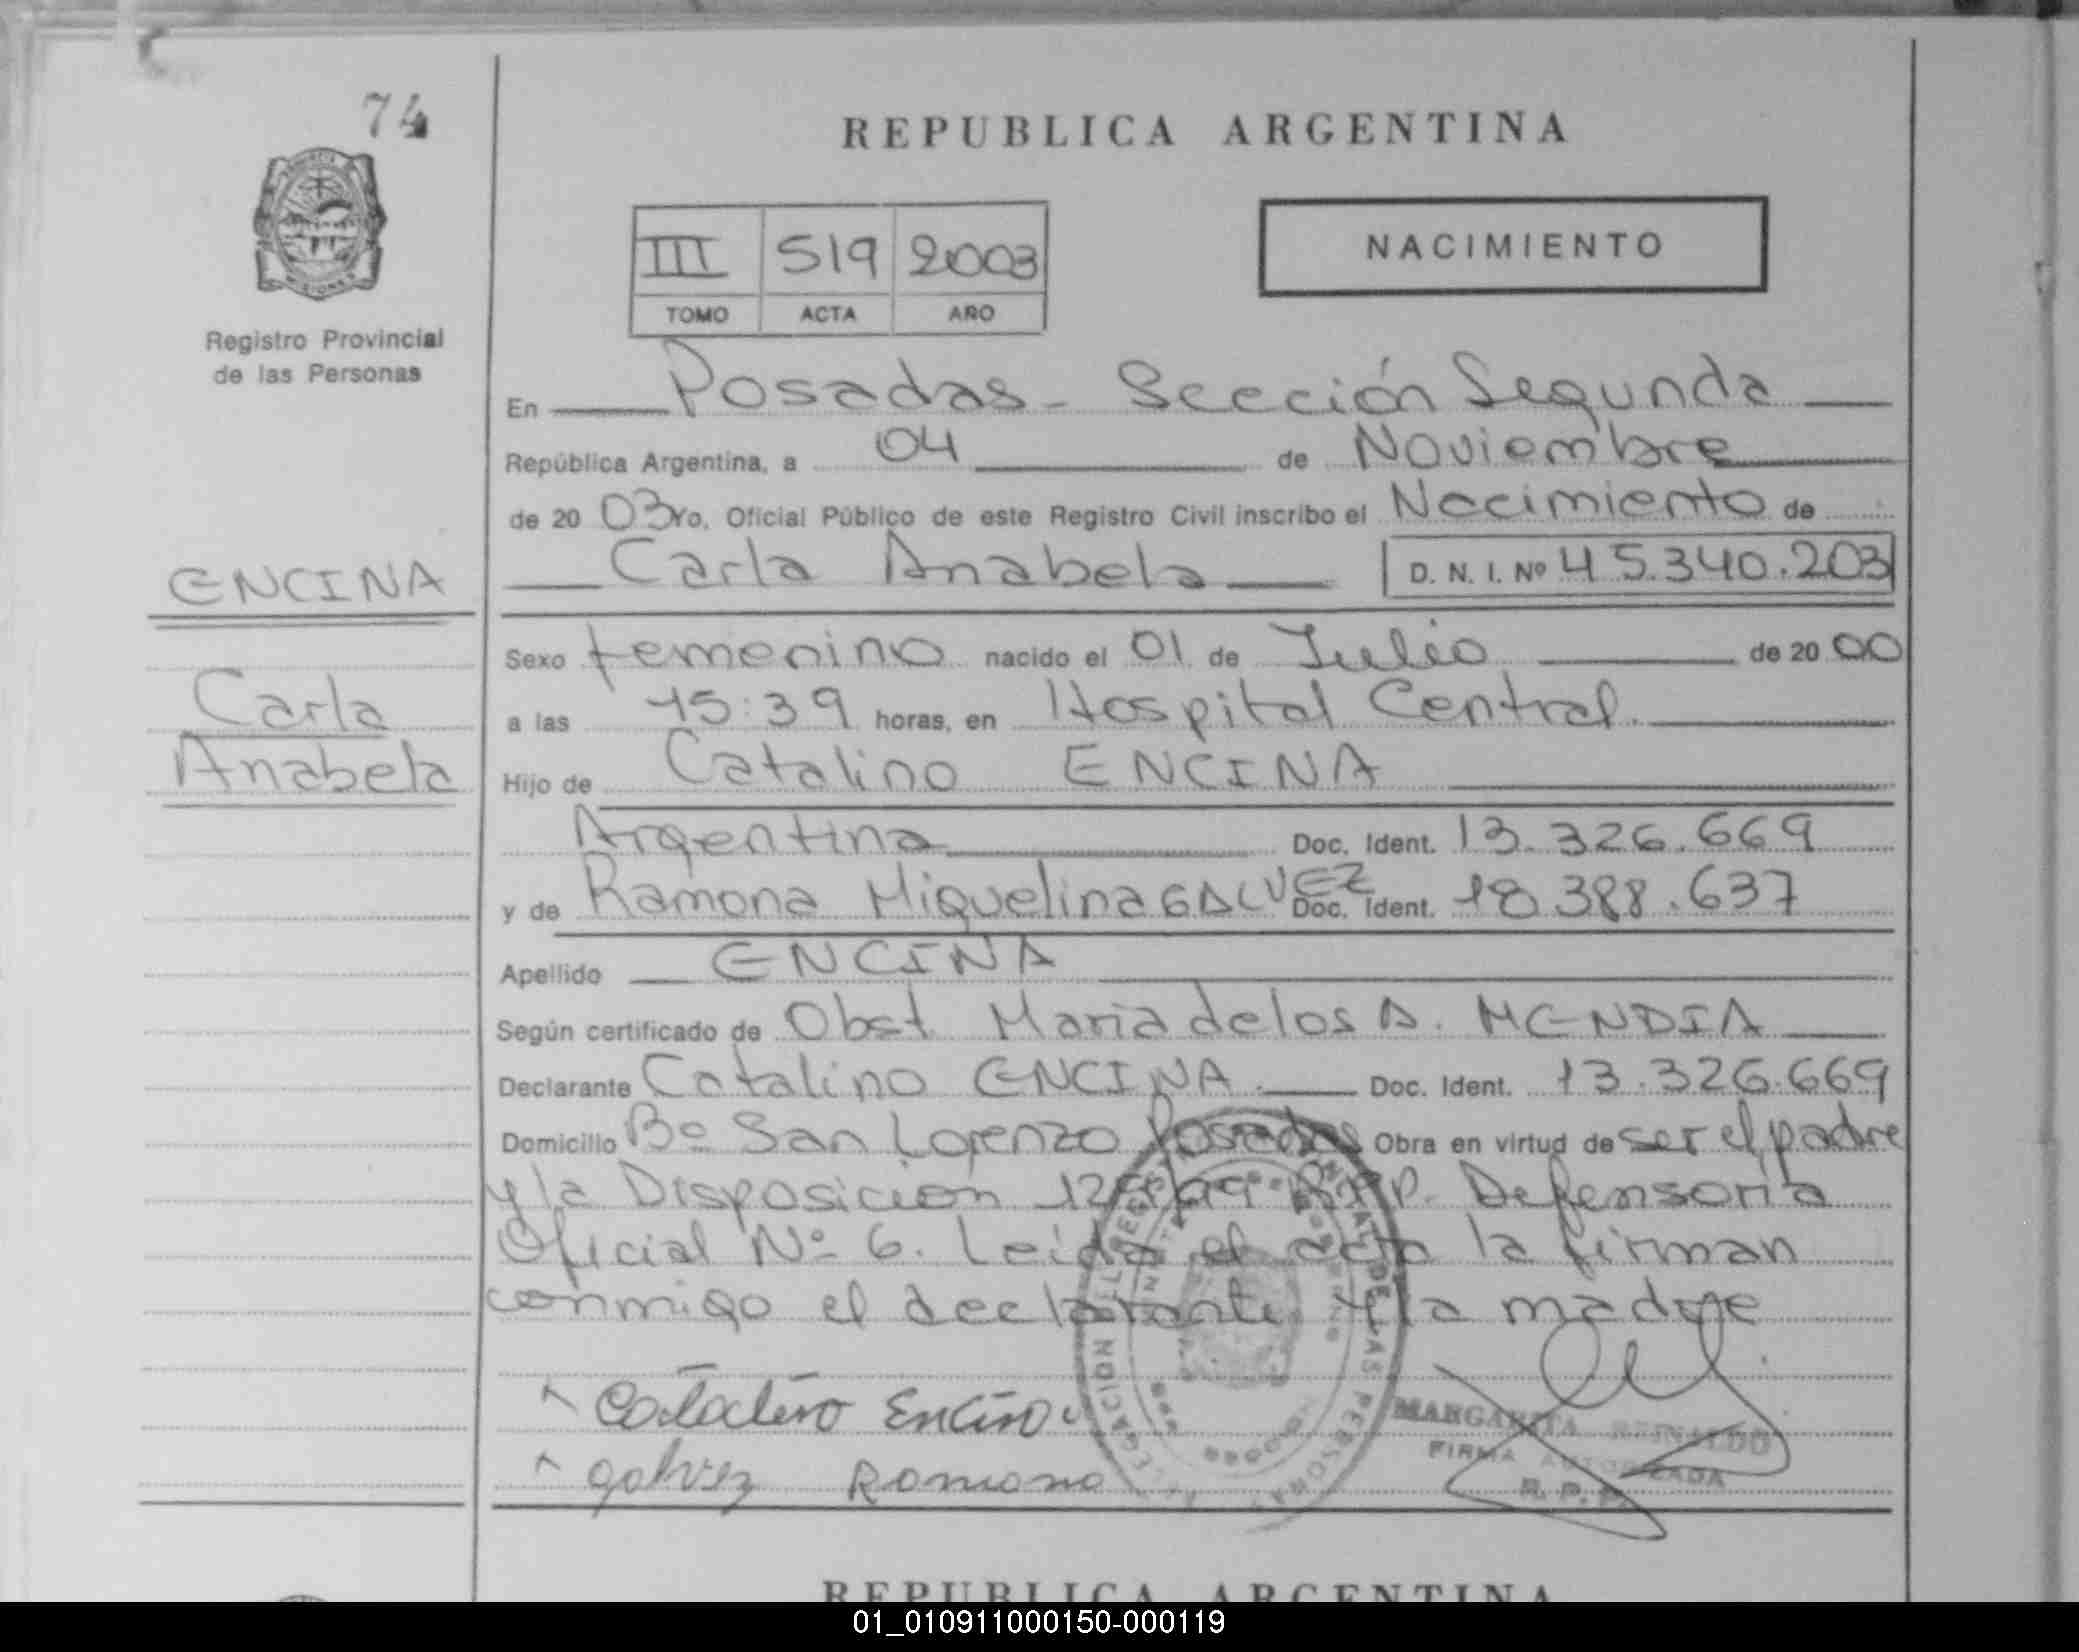 74
REPUBLICA ARGENTINA
III 519 2003
TOMO ACTA AÑO
NACIMIENTO
Registro Provincial
de las Personas
En Posadas - Sección Segunda
República Argentina, a 04 de Noviembre
de 20 03 Yo, Oficial Público de este Registro Civil inscribo el Nacimiento de
Carla Anabela D. N. I. Nº 45.340.203
ENCINA
Carla
Anabela
Sexo femenino nacido el 01 de Julio de 20 00
a las 15:39 horas, en Hospital Central.
Hijo de Catalino ENCINA
Argentina Doc. Ident. 13.326.669
y de Ramona Miguelina GALVEZ Doc. Ident. 18.388.637
Apellido ENCINA
Según certificado de Obst Maria de los A. MENDIA
Declarante Catalino ENCINA Doc. Ident. 13.326.669
Domicilio Bº San Lorenzo Posadas Obra en virtud de ser el padre
y la Disposición R.P.P. Defensoria
Oficial Nº 6. Leida el acta la firman
conmigo el declarante y la madre
Catalino Encina
Galvez Romona
MARGARITA REINALDO
FIRMA AUTORIZADA
R. P. P.
REPUBLICA ARGENTINA
01_010911000150-000119